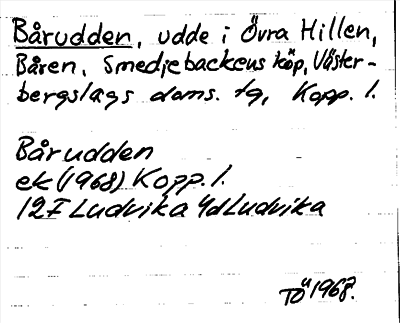 Bårudden, udde i Övra Hillen,
Båren, Smedjebackens köp, Väster-
bergslags doms. tg, Kopp. l.
Bårudden
ek (1968) Kopp. l.
12F Ludvika 4d Ludvika
TÖ 1968.